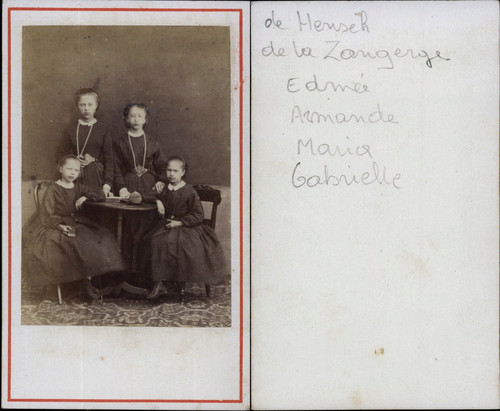 de Mensch
de la Zangerge
Edmée
Armande
Maria
Gabrielle